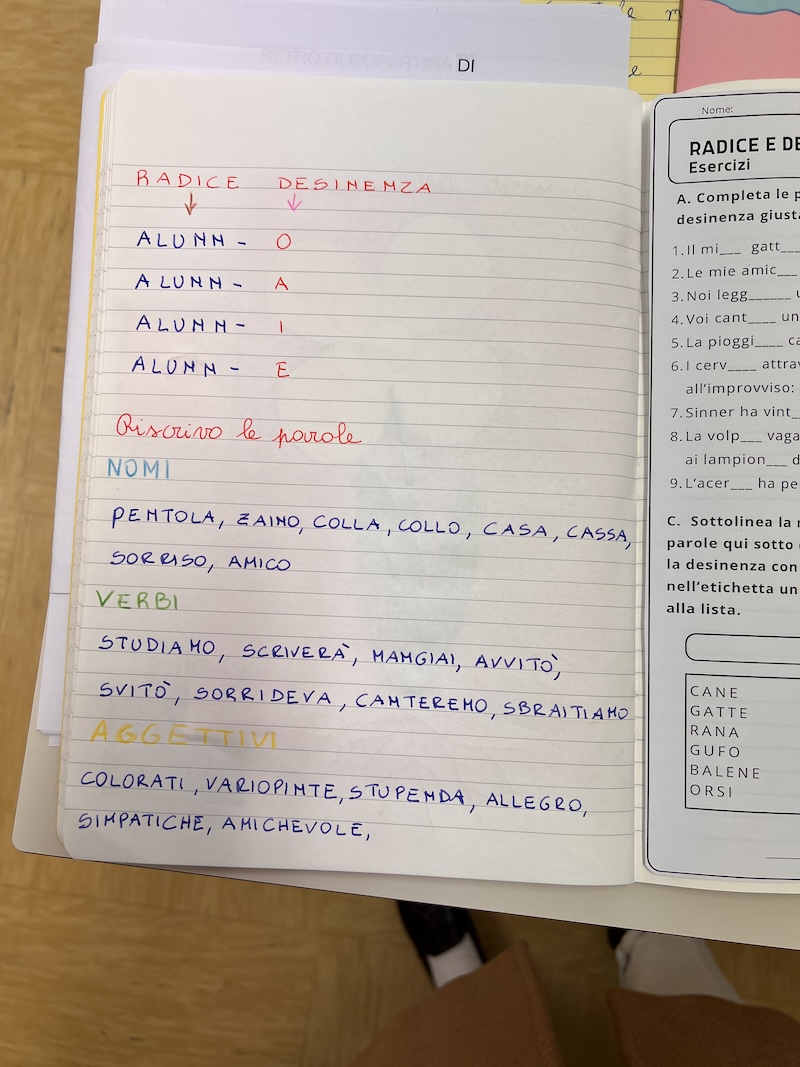 DI
RADICE DESINENZA
ALUNN - O
ALUNN - A
ALUNN - I
ALUNN - E
Riscrivo le parole
NOMI
PENTOLA, ZAINO, COLLA, COLLO, CASA, CASSA,
SORRISO, AMICO
VERBI
STUDIAMO, SCRIVERÀ, MANGIAI, AVVITÒ,
SVITÒ, SORRIDEVA, CANTEREMO, SBRAITIAMO
AGGETTIVI
COLORATI, VARIOPINTE, STUPENDA, ALLEGRO,
SIMPATICHE, AMICHEVOLE,
Nome:
RADICE E DE
Esercizi
A. Completa le p
desinenza giusta
1. Il mi___ gatt___
2. Le mie amic___
3. Noi legg______ u
4. Voi cant____ un
5. La pioggi____ ca
6. I cerv____ attrav
all'improvviso:
7. Sinner ha vint_
8. La volp___ vaga
ai lampion___ d
9. L'acer___ ha pe
C. Sottolinea la r
parole qui sotto
la desinenza con
nell'etichetta un
alla lista.
CANE
GATTE
RANA
GUFO
BALENE
ORSI